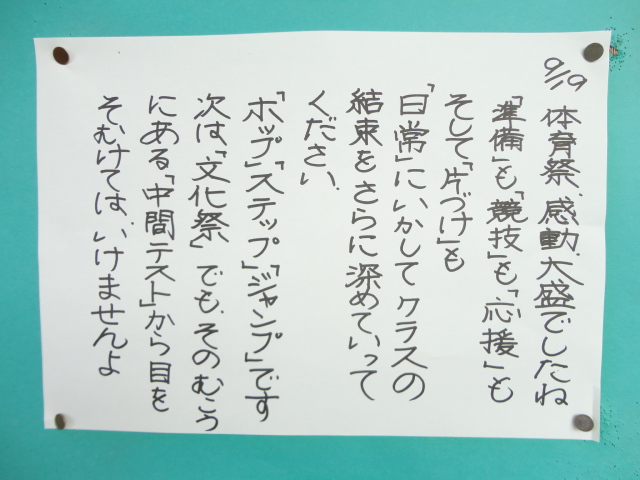 9/19 体育祭、感動、大盛でしたね
「準備」も「競技」も「応援」も
そして「片づけ」も
「日常」にいかしてクラスの
結束をさらに深めていって
ください、
「ホップ」「ステップ」「ジャンプ」です
次は「文化祭」でも、そのむこう
にある「中間テスト」から目を
そむけては、いけませんよ